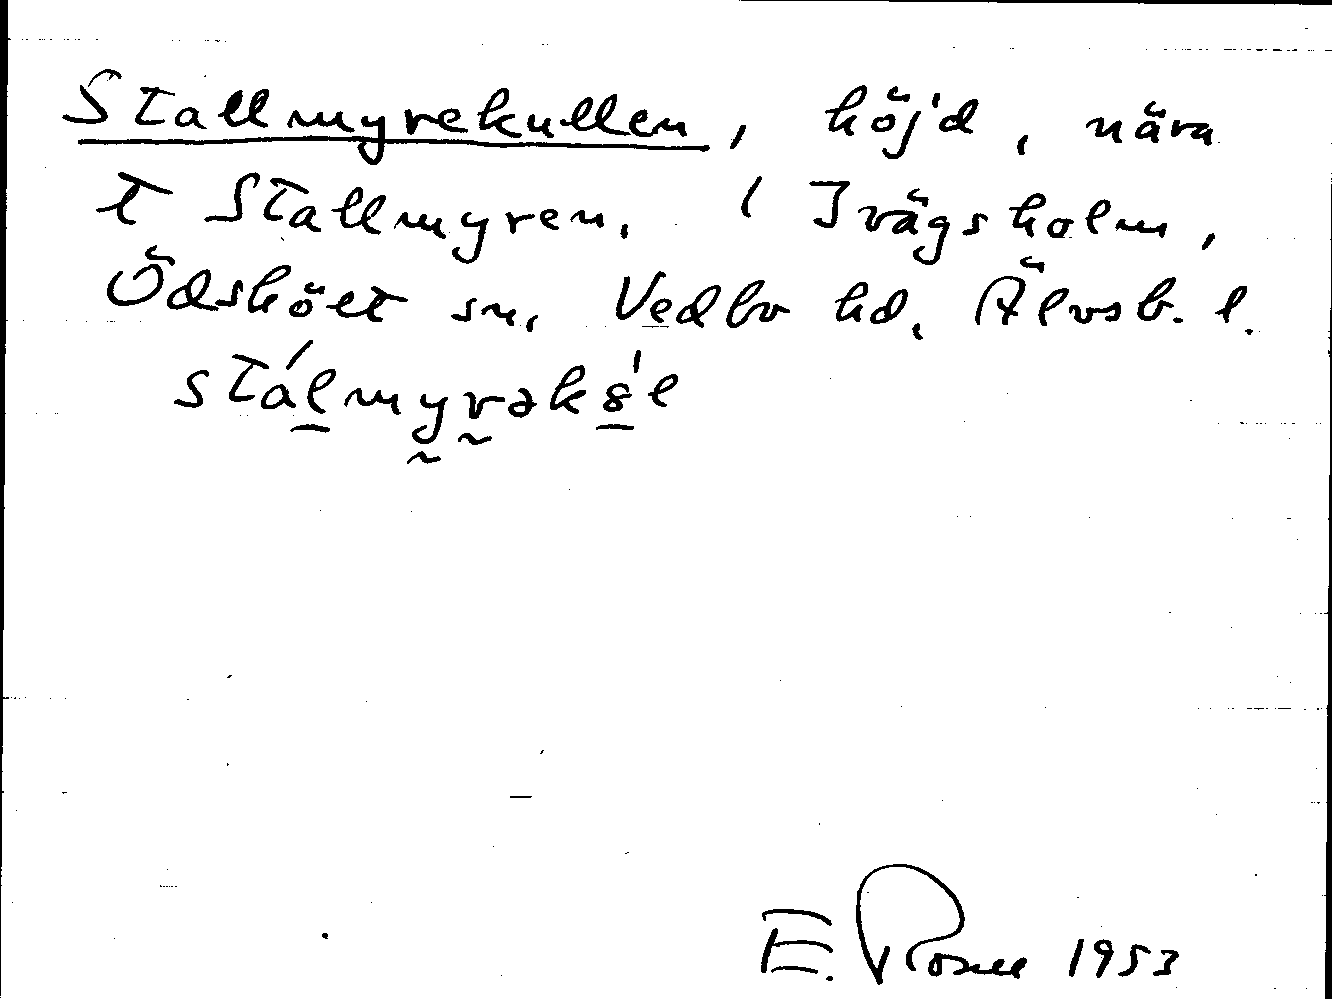 Stallmyrekullen, höjd, nära
t Stallmyren. ( Ivägsholm,
Ödskölt sn, Vedbo hd, Älvsb. l.
stálmyrəks'l
E. Rosell 1953